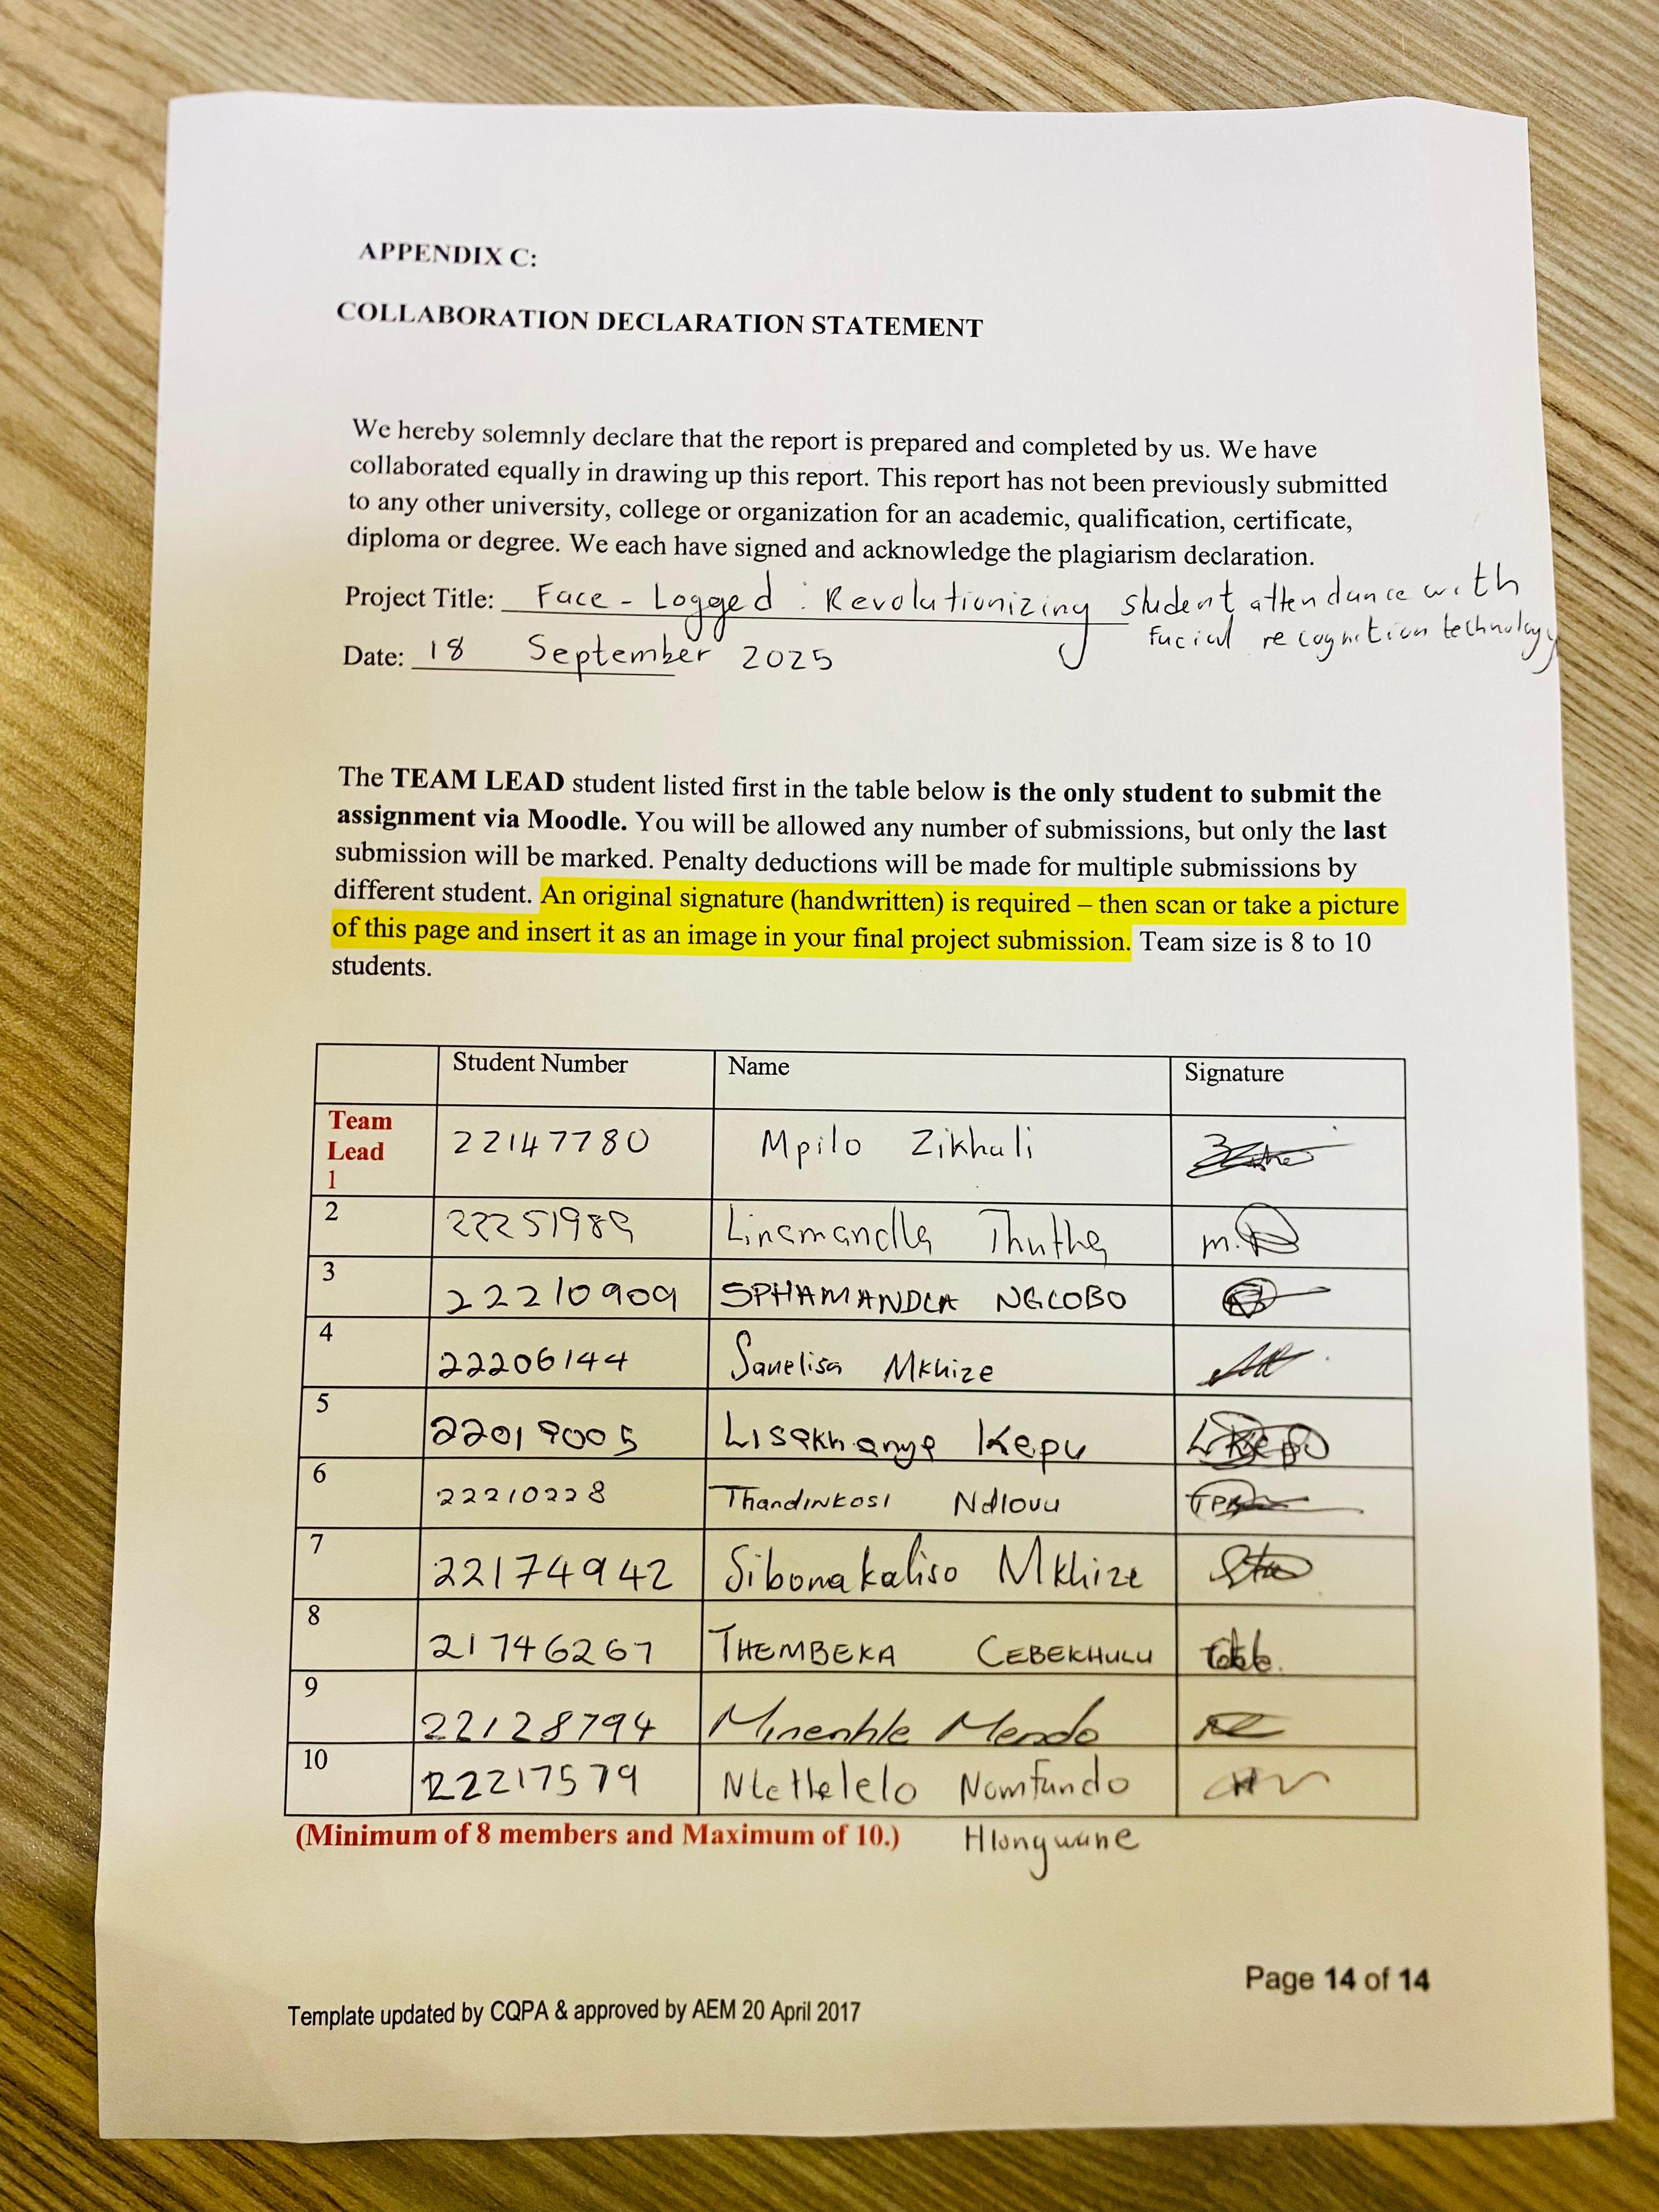 APPENDIX C:
COLLABORATION DECLARATION STATEMENT
We hereby solemnly declare that the report is prepared and completed by us. We have
collaborated equally in drawing up this report. This report has not been previously submitted
to any other university, college or organization for an academic, qualification, certificate,
diploma or degree. We each have signed and acknowledge the plagiarism declaration.
Project Title: Face - Logged : Revolutionizing student attendance with
facial recognition technology
Date: 18 September 2025
The TEAM LEAD student listed first in the table below is the only student to submit the
assignment via Moodle. You will be allowed any number of submissions, but only the last
submission will be marked. Penalty deductions will be made for multiple submissions by
different student. An original signature (handwritten) is required – then scan or take a picture
of this page and insert it as an image in your final project submission. Team size is 8 to 10
students.
Student Number Name Signature
Team
Lead
1 22147780 Mpilo Zikhali
2 22251989 Linamandla Thutha
3 22210909 SPHAMANDLA NGCOBO
4 22206144 Sanelisa Mkhize
5 22019005 Lisakhanya Kepu
6 22210228 Thandinkosi Ndlovu
7 22174942 Sibonakaliso Mkhize
8 21746267 THEMBEKA CEBEKHULU
9 22128794 Minenhle Mendo
10 22217579 Nomfundo
(Minimum of 8 members and Maximum of 10.) Hlongwane
Page 14 of 14
Template updated by CQPA & approved by AEM 20 April 2017